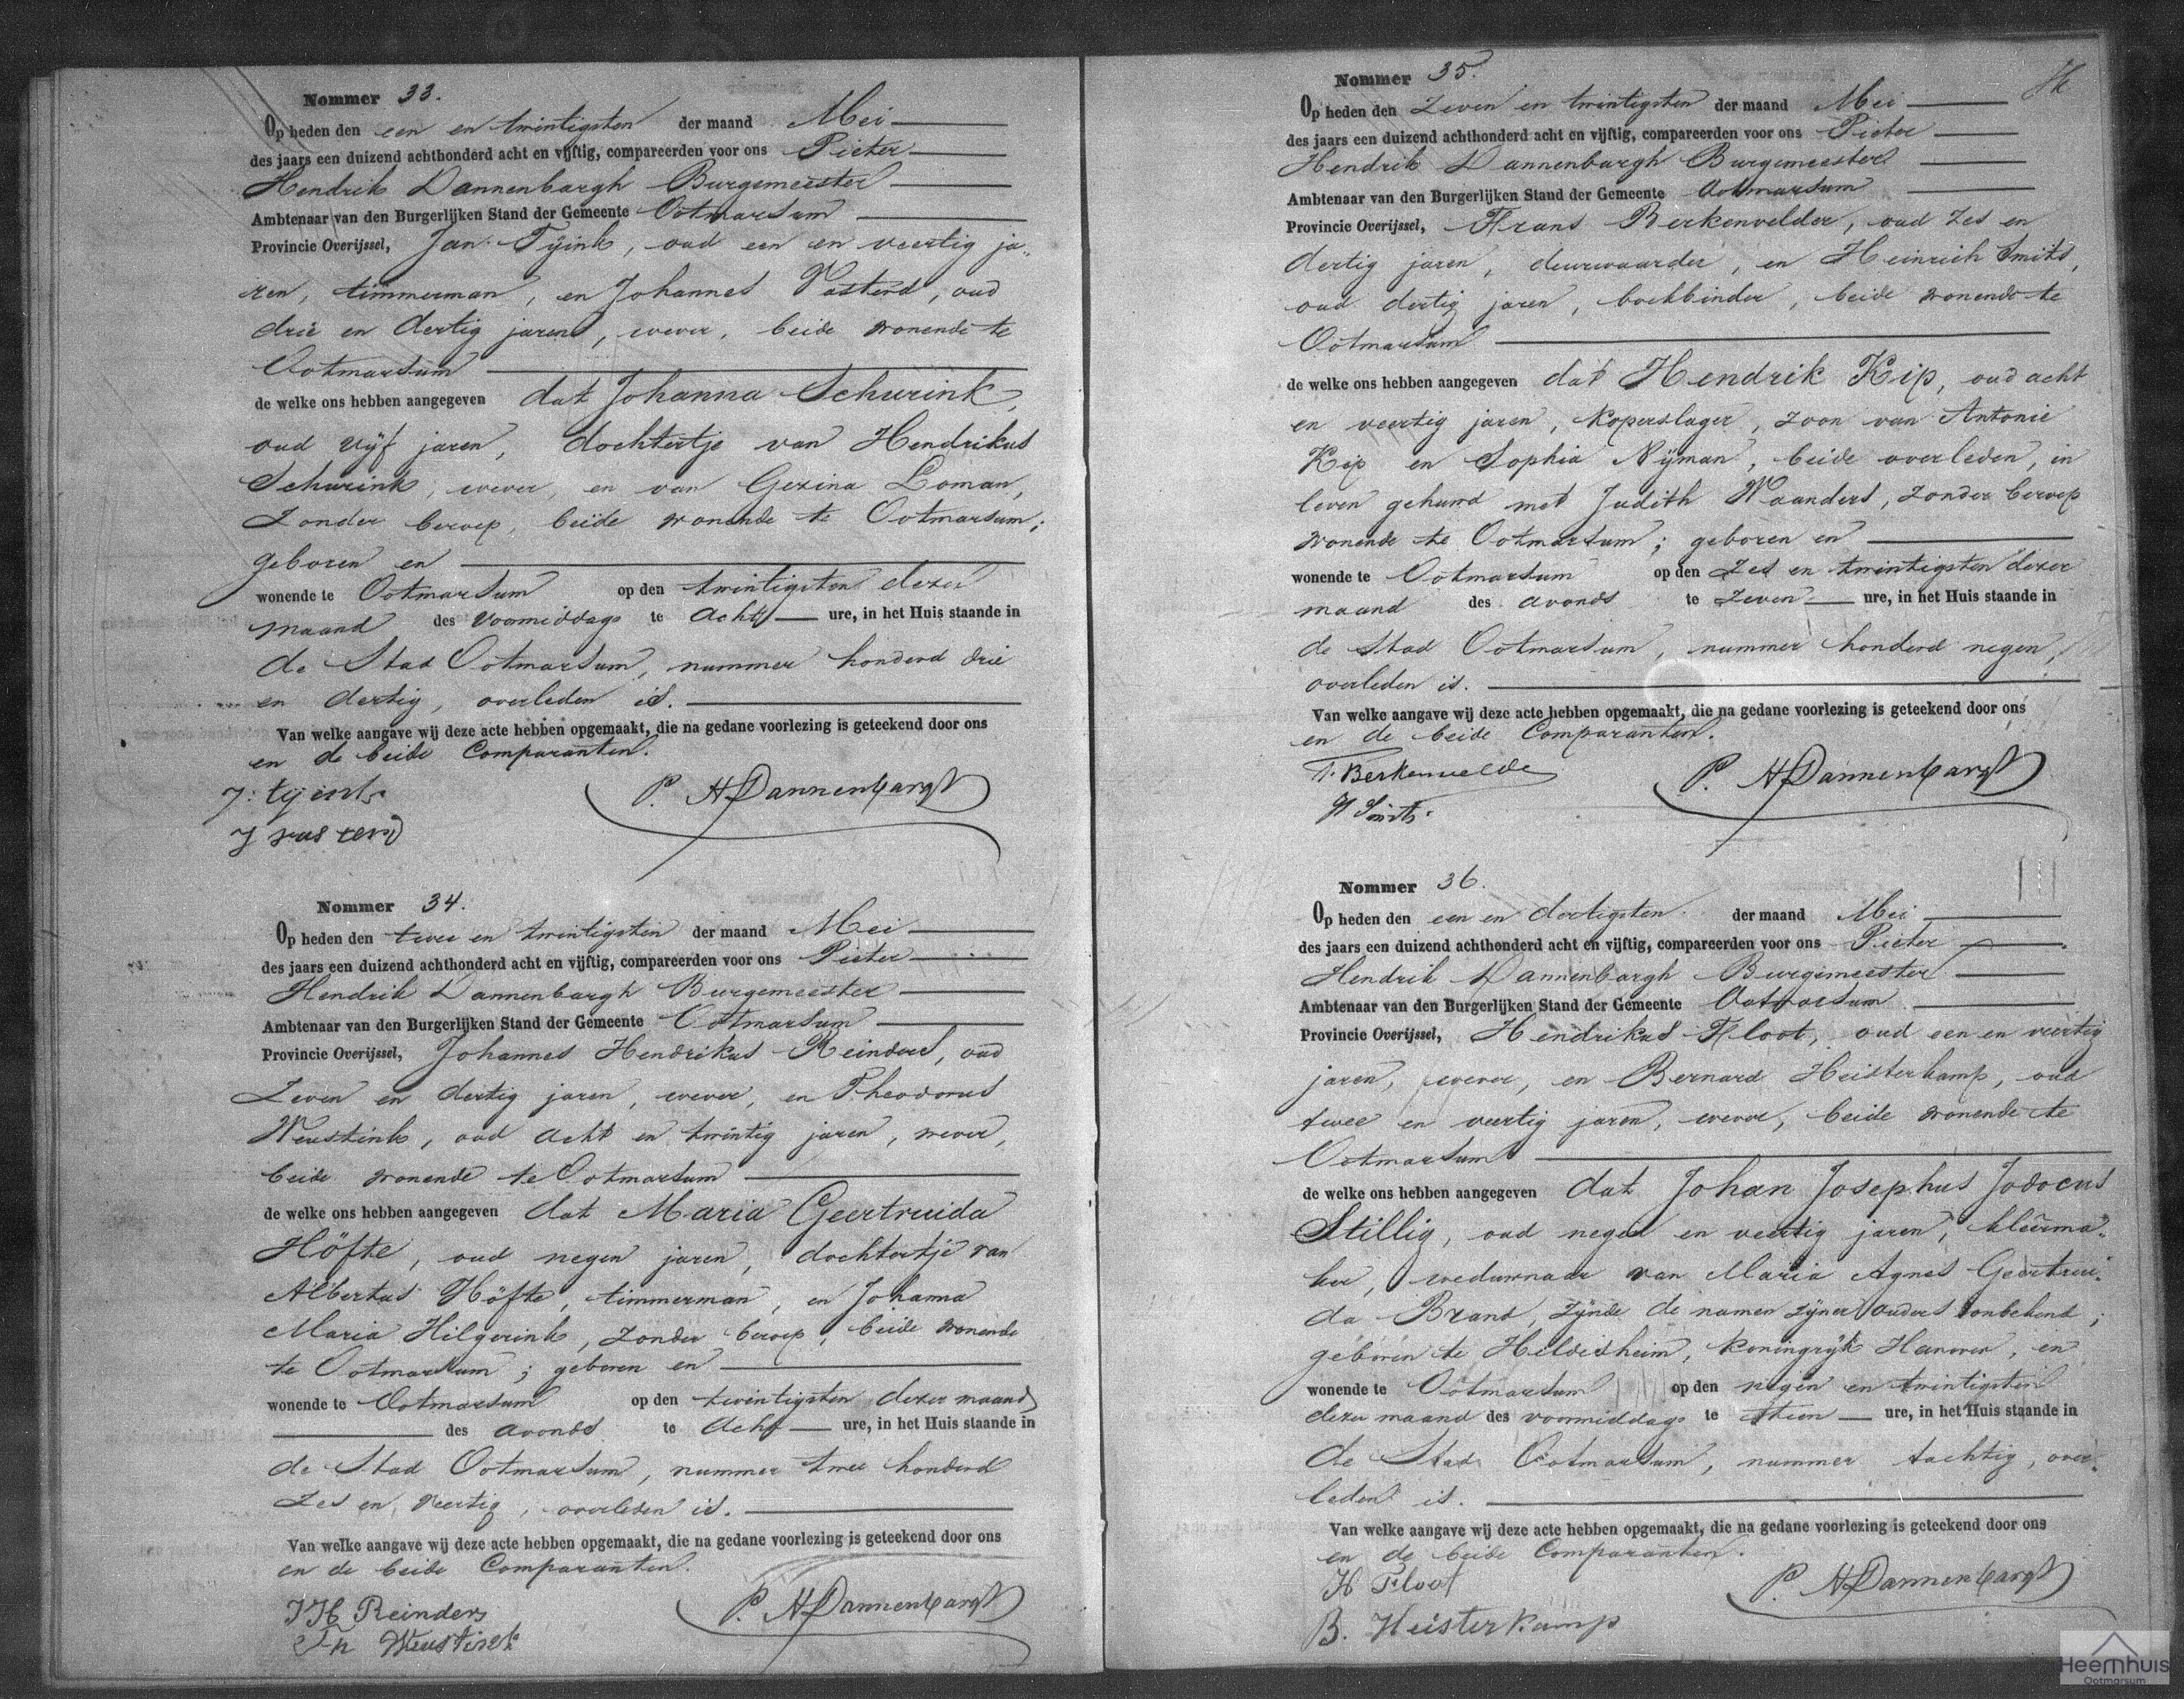 Nommer 33.
Op heden den een en twintigsten der maand Mei
des jaars een duizend achthonderd acht en vijftig, compareerden voor ons Pieter
Hendrik Dannenbargh Burgemeester
Ambtenaar van den Burgerlijken Stand der Gemeente Ootmarsum
Provincie Overijssel, Jan Tijink, oud een en veertig ja„
ren, timmerman, en Johannes Vasterd, oud
drie en dertig jaren, wever, beide wonende te
Ootmarsum
de welke ons hebben aangegeven dat Johanna Schurink,
oud vijf jaren, dochtertje van Hendrikus
Schurink, wever, en van Gezina Loman,
zonder beroep, beide wonende te Ootmarsum;
geboren en
wonende te Ootmarsum op den twintigsten dezer
maand des voormiddags te acht ure, in het Huis staande in
de Stad Ootmarsum, nummer honderd drie
en dertig, overleden is.
Van welke aangave wij deze acte hebben opgemaakt, die na gedane voorlezing is geteekend door ons
en de beide Comparanten.
P. H Dannenbargh
Nommer 34.
Op heden den twee en twintigsten der maand Mei
des jaars een duizend achthonderd acht en vijftig, compareerden voor ons Pieter
Hendrik Dannenbargh Burgemeester
Ambtenaar van den Burgerlijken Stand der Gemeente Ootmarsum
Provincie Overijssel, Johannes Hendrikus Reinders, oud
zeven en dertig jaren, wever, en Theodorus
Weustink, oud acht en twintig jaren, wever,
beide wonende te Ootmarsum
de welke ons hebben aangegeven dat Maria Geertruida
Höfte, oud negen jaren, dochtertje van
Albertus Höfte, timmerman, en Johanna
Maria Hilgerink, zonder beroep, beide wonende
te Ootmarsum; geboren en
wonende te Ootmarsum op den twintigsten dezer maand
des avonds te acht ure, in het Huis staande in
de Stad Ootmarsum, nummer twee honderd
zes en veertig, overleden is.
Van welke aangave wij deze acte hebben opgemaakt, die na gedane voorlezing is geteekend door ons
en de beide Comparanten.
J H Reinders
Th Weustink
P. H Dannenbargh
Nommer 35.
Op heden den zeven en twintigsten der maand Mei
des jaars een duizend achthonderd acht en vijftig, compareerden voor ons Pieter
Hendrik Dannenbargh Burgemeester
Ambtenaar van den Burgerlijken Stand der Gemeente Ootmarsum
Provincie Overijssel, Frans Berkenvelder, oud zes en
dertig jaren, deurwaarder, en Heinrich Smits,
oud dertig jaren, boekbinder, beide wonende te
Ootmarsum
de welke ons hebben aangegeven dat Hendrik Kip, oud acht
en veertig jaren, koperslager, zoon van Antonie
Kip en Sophia Nijman, beide overleden, in
leven gehuwd met Judith Waanders, zonder beroep
wonende te Ootmarsum; geboren en
wonende te Ootmarsum op den zes en twintigsten dezer
maand des avonds te zeven ure, in het Huis staande in
de Stad Ootmarsum, nummer honderd negen,
overleden is.
Van welke aangave wij deze acte hebben opgemaakt, die na gedane voorlezing is geteekend door ons
en de beide Comparanten.
F. Berkenvelder
H Smits
P. H Dannenbargh
Nommer 36.
Op heden den een en dertigsten der maand Mei
des jaars een duizend achthonderd acht en vijftig, compareerden voor ons Pieter
Hendrik Dannenbargh Burgemeester
Ambtenaar van den Burgerlijken Stand der Gemeente Ootmarsum
Provincie Overijssel, Hendrikus Floot, oud een en veertig
jaren, wever, en Bernard Heisterkamp, oud
twee en veertig jaren, wever, beide wonende te
Ootmarsum
de welke ons hebben aangegeven dat Johan Josephus Jodocus
Stillig, oud negen en veertig jaren, kleêrma„
ker, weduwnaar van Maria Agnes Geertrui„
da Brand, zijnde de namen zijner ouders onbekend;
geboren te Hildesheim, koningrijk Hanover, en
wonende te Ootmarsum op den negen en twintigsten
dezer maand des voormiddags te tien ure, in het Huis staande in
de Stad Ootmarsum, nummer tachtig, over„
leden is.
Van welke aangave wij deze acte hebben opgemaakt, die na gedane voorlezing is geteekend door ons
en de beide Comparanten.
H Floot
B. Heisterkamp
P. H Dannenbargh
Heemhuis
Ootmarsum